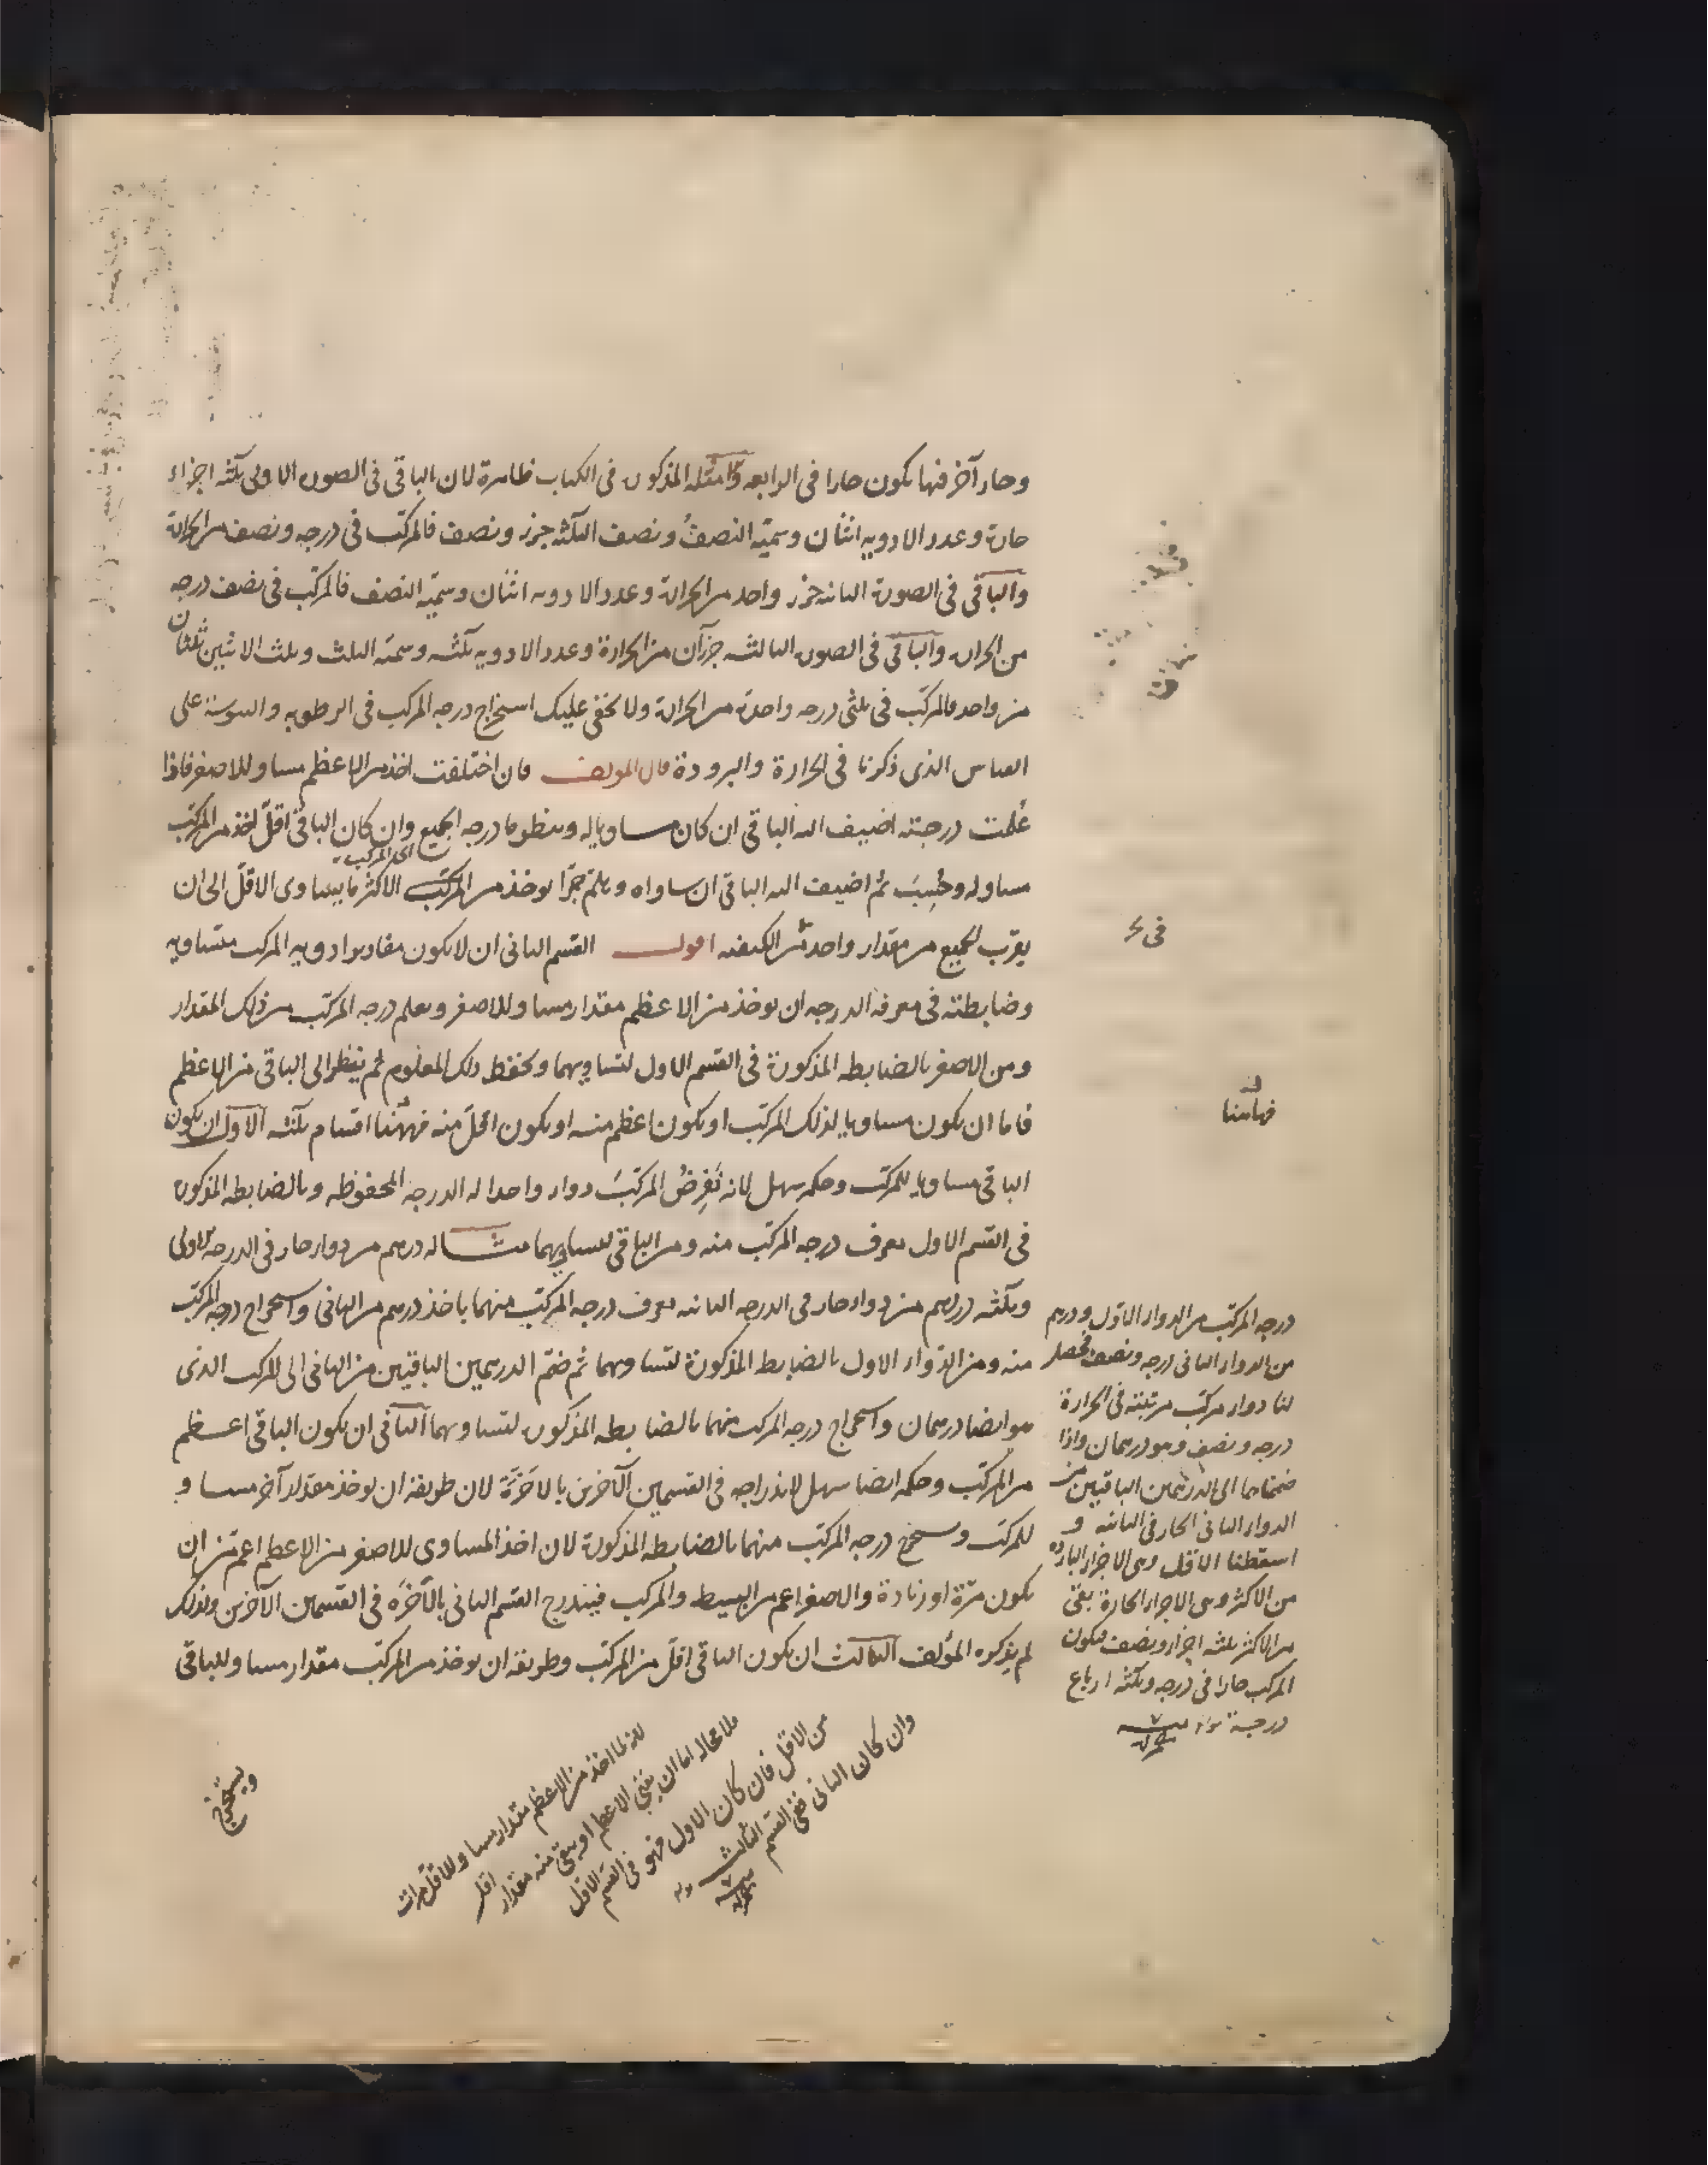 وحار آخر فيها يكون حارا في الرابعه وامثله المذكورة في الكتاب ظاهرة لان الباقي في الصورة الاولى ثلثه اجزاء
حارة وعدد الادويه اثنان وسميّه النصفُ ونصف الثلثه جزء ونصف فالمركّب في درجه ونصف من الحرارة
والباقي في الصورة الثانيه جزء واحد من الحرارة وعدد الادويه اثنان وسميّه النصف فالمركّب في نصف درجه
من الحرارة والباقي في الصورة الثالثه جزآن من الحرارة وعدد الادويه ثلثه وسميّه الثلث وثلث الاثنين ثلثان
من واحد فالمركّب في ثلثي درجه واحدة من الحرارة ولا يخفى عليك استخراج درجه المركب في الرطوبه واليبوسة على
القياس الذي ذكرنا في الحرارة والبرودة قال المؤلف فان اختلفت اخذ من الاعظم مساو للاصغر فاذا
عُلمت درجته اضيف اليه الباقي ان كان مساويا له وينظر ما درجه الجميع وان كان الباقي اقلّ اخذ من المركّب
مساو له وحُسِبَ ثم اضيف اليه الباقي ان ساواه وهلمّ جرّا يوخذ من المركّب الاكثر ما يساوى الاقلّ الى ان
اى المركب
يقرب الجميع من مقدار واحد من الكيفيه اقول القسم الثاني ان لا يكون مقادير ادويه المركب متساويه
وضابطته في معرفة الدرجه ان يوخذ من الاعظم مقدار مساو للاصغر ويعلم درجه المركّب من ذلك المقدار
ومن الاصغر بالضابطه المذكورة في القسم الاول لتساويهما ويحفظ ذلك المعلوم ثم ينظر الى الباقي من الاعظم
فاما ان يكون مساويا لذلك المركّب او يكون اعظم منه او يكون اقلّ منه فههنا اقسام ثلثه الاول ان يكون
الباقي مساويا للمركّب وحكمه سهل لانه نَفرِضُ المركّبَ دواء واحدا له الدرجه المحفوظه وبالضابطه المذكورة
في القسم الاول يعرف درجه المركّب منه ومن الباقي لتساويهما مثاله درهم من دواء حار في الدرجه الاولى
وثلثه دراهم من دواء حار في الدرجه الثانيه يعرف درجه المركّب منهما باخذ درهم من الثاني واستخراج درجه المركّب
منه ومن الدواء الاول بالضابط المذكورة لتساويهما ثم ضمّ الدرهمين الباقيين من الثاني الى المركب الذي
هو ايضا درهمان واستخراج درجه المركب منهما بالضابطه المذكورة لتساويهما الثاني ان يكون الباقي اعظم
من المركّب وحكمه ايضا سهل لاندراجه في القسمين الآخرين بالاَخَرَة لان طريقه ان يوخذ مقدار آخر مساو
للمركّب ويستخرج درجه المركّب منهما بالضابطه المذكورة لان اخذ المساوى للاصغر من الاعظم اعمّ من ان
يكون مرّة او زيادة والاصغر اعم من البسيط والمركب فيندرج القسم الثاني بالآخَرة في القسمين الآخرين ولذلك
لم يذكره المؤلف الثالث ان يكون الباقي اقلّ من المركّب وطريقه ان يوخذ من المركّب مقدار مساو للباقي
ويستخرج
في
فهاهنا
درجه المركب من الدواء الاوّل ودرهم
من الدواء الثاني درجه ونصف فحصل
لنا دواء مركّب مرتبته في الحرارة
درجه ونصف وهو درهمان واذا
ضممناهما الى الدرهمين الباقيين من
الدواء الثاني الحار في الثانيه و
اسقطنا الاقل وهى الاجزاء الباردة
من الاكثر وهى الاجزاء الحارة بقى
من الاكثر ثلثه اجزاء ونصف فيكون
المركب حارا في درجه وثلثه ارباع
درجة
لانه لما اخذ من الاعظم مقدار مساو للاقل مرات
فلا محاله اما ان يفنى الاعظم او يبقى منه مقدار اقل
من الاقل فان كان الاول فهو في القسم الاول
وان كان الثاني ففي القسم الثالث